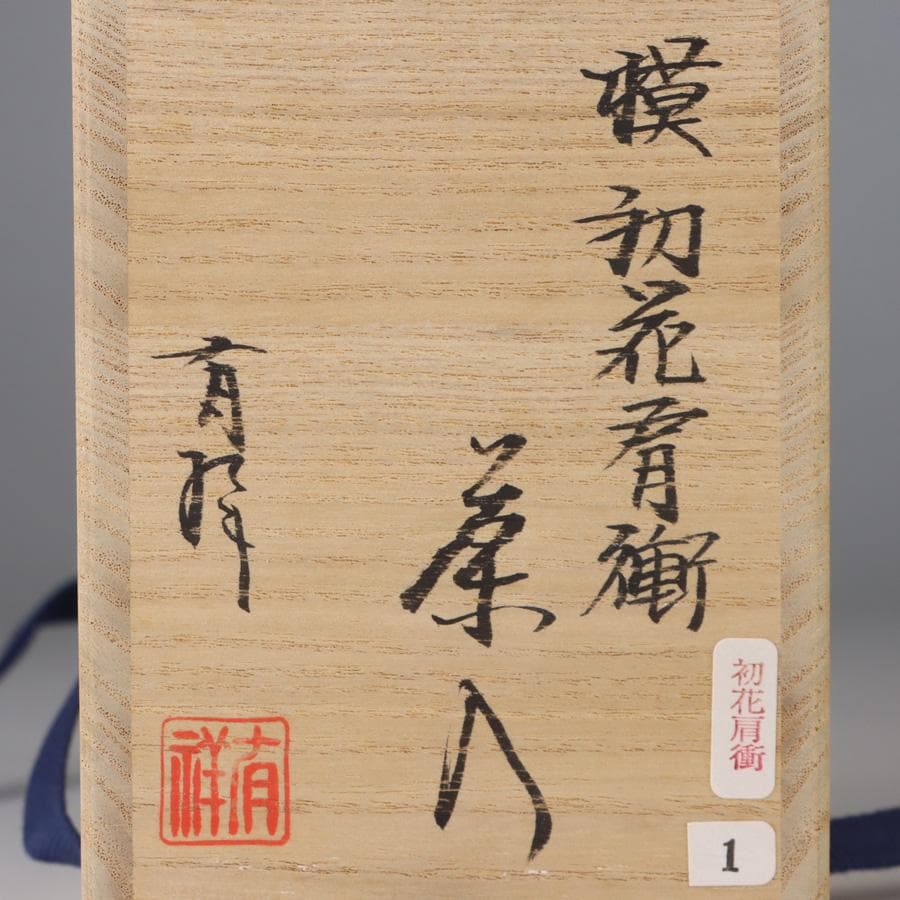 模初花肩衝
茶入
有祥
有祥
初花肩衝
1